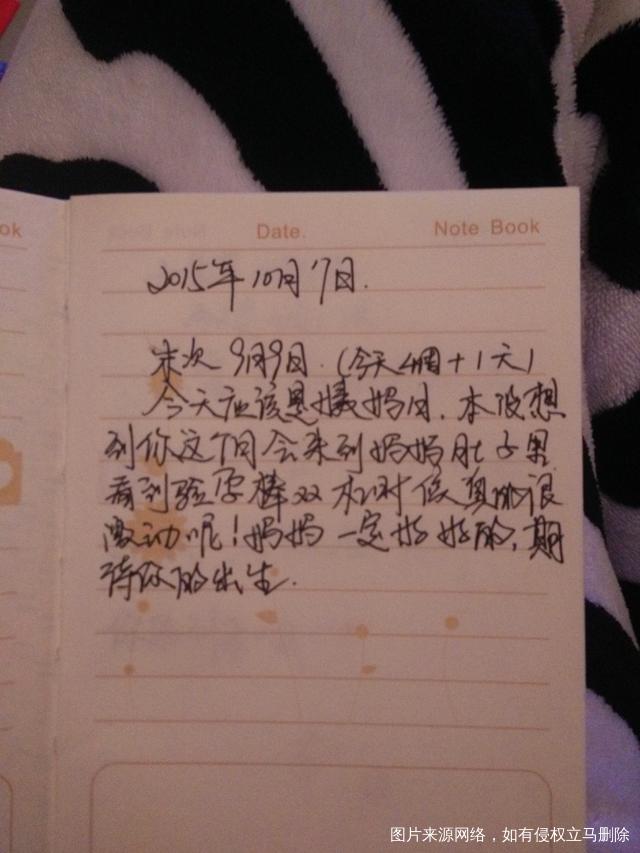 ok
Date.
Note Book
2015年10月7日.
末次 9月9日. (今天4周+1天)
今天应该是姨妈日. 本没想
到你这个月会来到妈妈肚子里
看到验孕棒双杠时候真的很
激动呢！妈妈一定好好的, 期
待你的出生.
图片来源网络，如有侵权立马删除